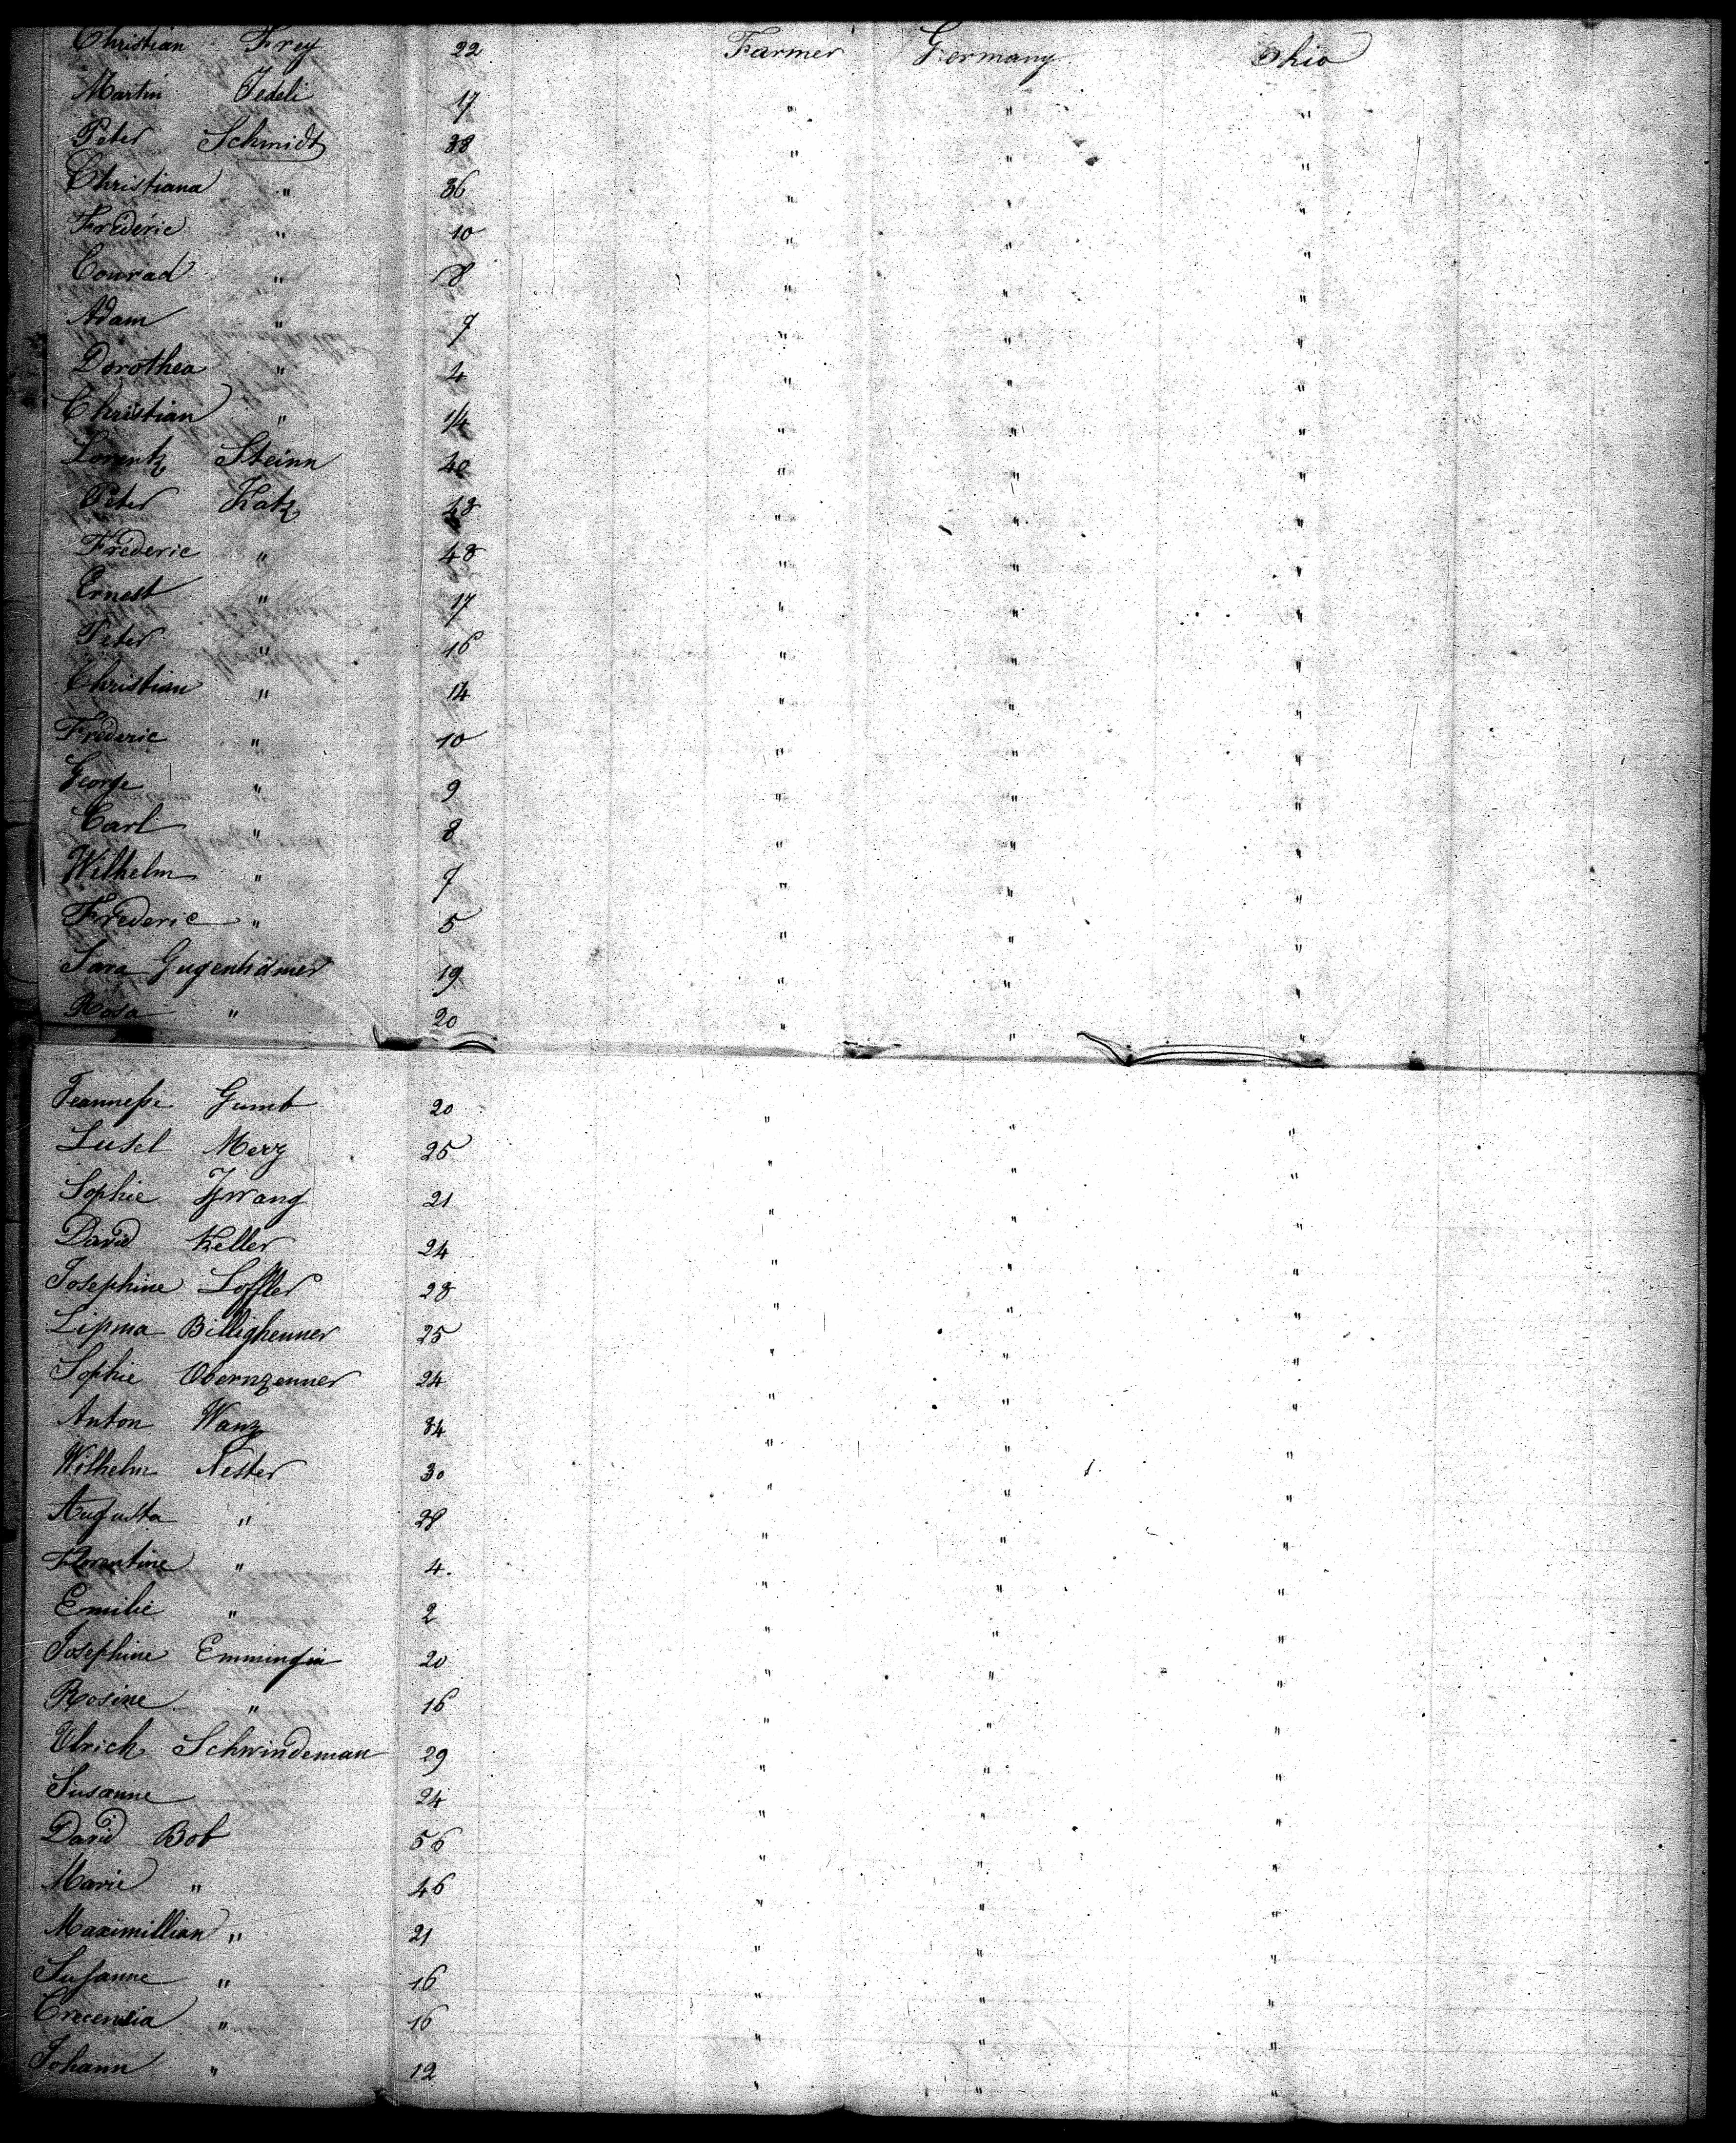 Christian Frey 22 Farmer Germany Ohio
Martin Jedeli 17 " " "
Peter Schmidt 38 " " "
Christiana " 36 " " "
Frederic " 10 " " "
Conrad " 8 " " "
Adam " 7 " " "
Dorothea " 4 " " "
Christian " 1/4 " " "
Lorentz Steinn 40 " " "
Peter Katz 48 " " "
Frederic " 48 " " "
Ernest " 17 " " "
Peter " 16 " " "
Christian " 14 " " "
Frederic " 10 " " "
George " 9 " " "
Carl " 8 " " "
Wilhelm " 7 " " "
Frederic " 5 " " "
Sara Gugenheimer 19 " " "
Rosa " 20 " " "
Jeannesse Gumb 20 " " "
Lusel Merz 25 " " "
Sophie Zwang 21 " " "
David Keller 24 " " "
Josephine Loffler 28 " " "
Lipma Billigheuner 25 " " "
Sophie Obernzenner 24 " " "
Anton Wanz 34 " " "
Wilhelm Nester 30 " " "
Augusta " 28 " " "
Florentine " 4. " " "
Emilie " 2 " " "
Josephine 20 " " "
Rosine " 16 " " "
Ulrich Schwindeman 29 " " "
Susanne 24 " " "
David Bob 56 " " "
Marie " 46 " " "
Maximillian " 21 " " "
Susanne " 16 " " "
Crecensia " 16 " " "
Johann " 12 " " "